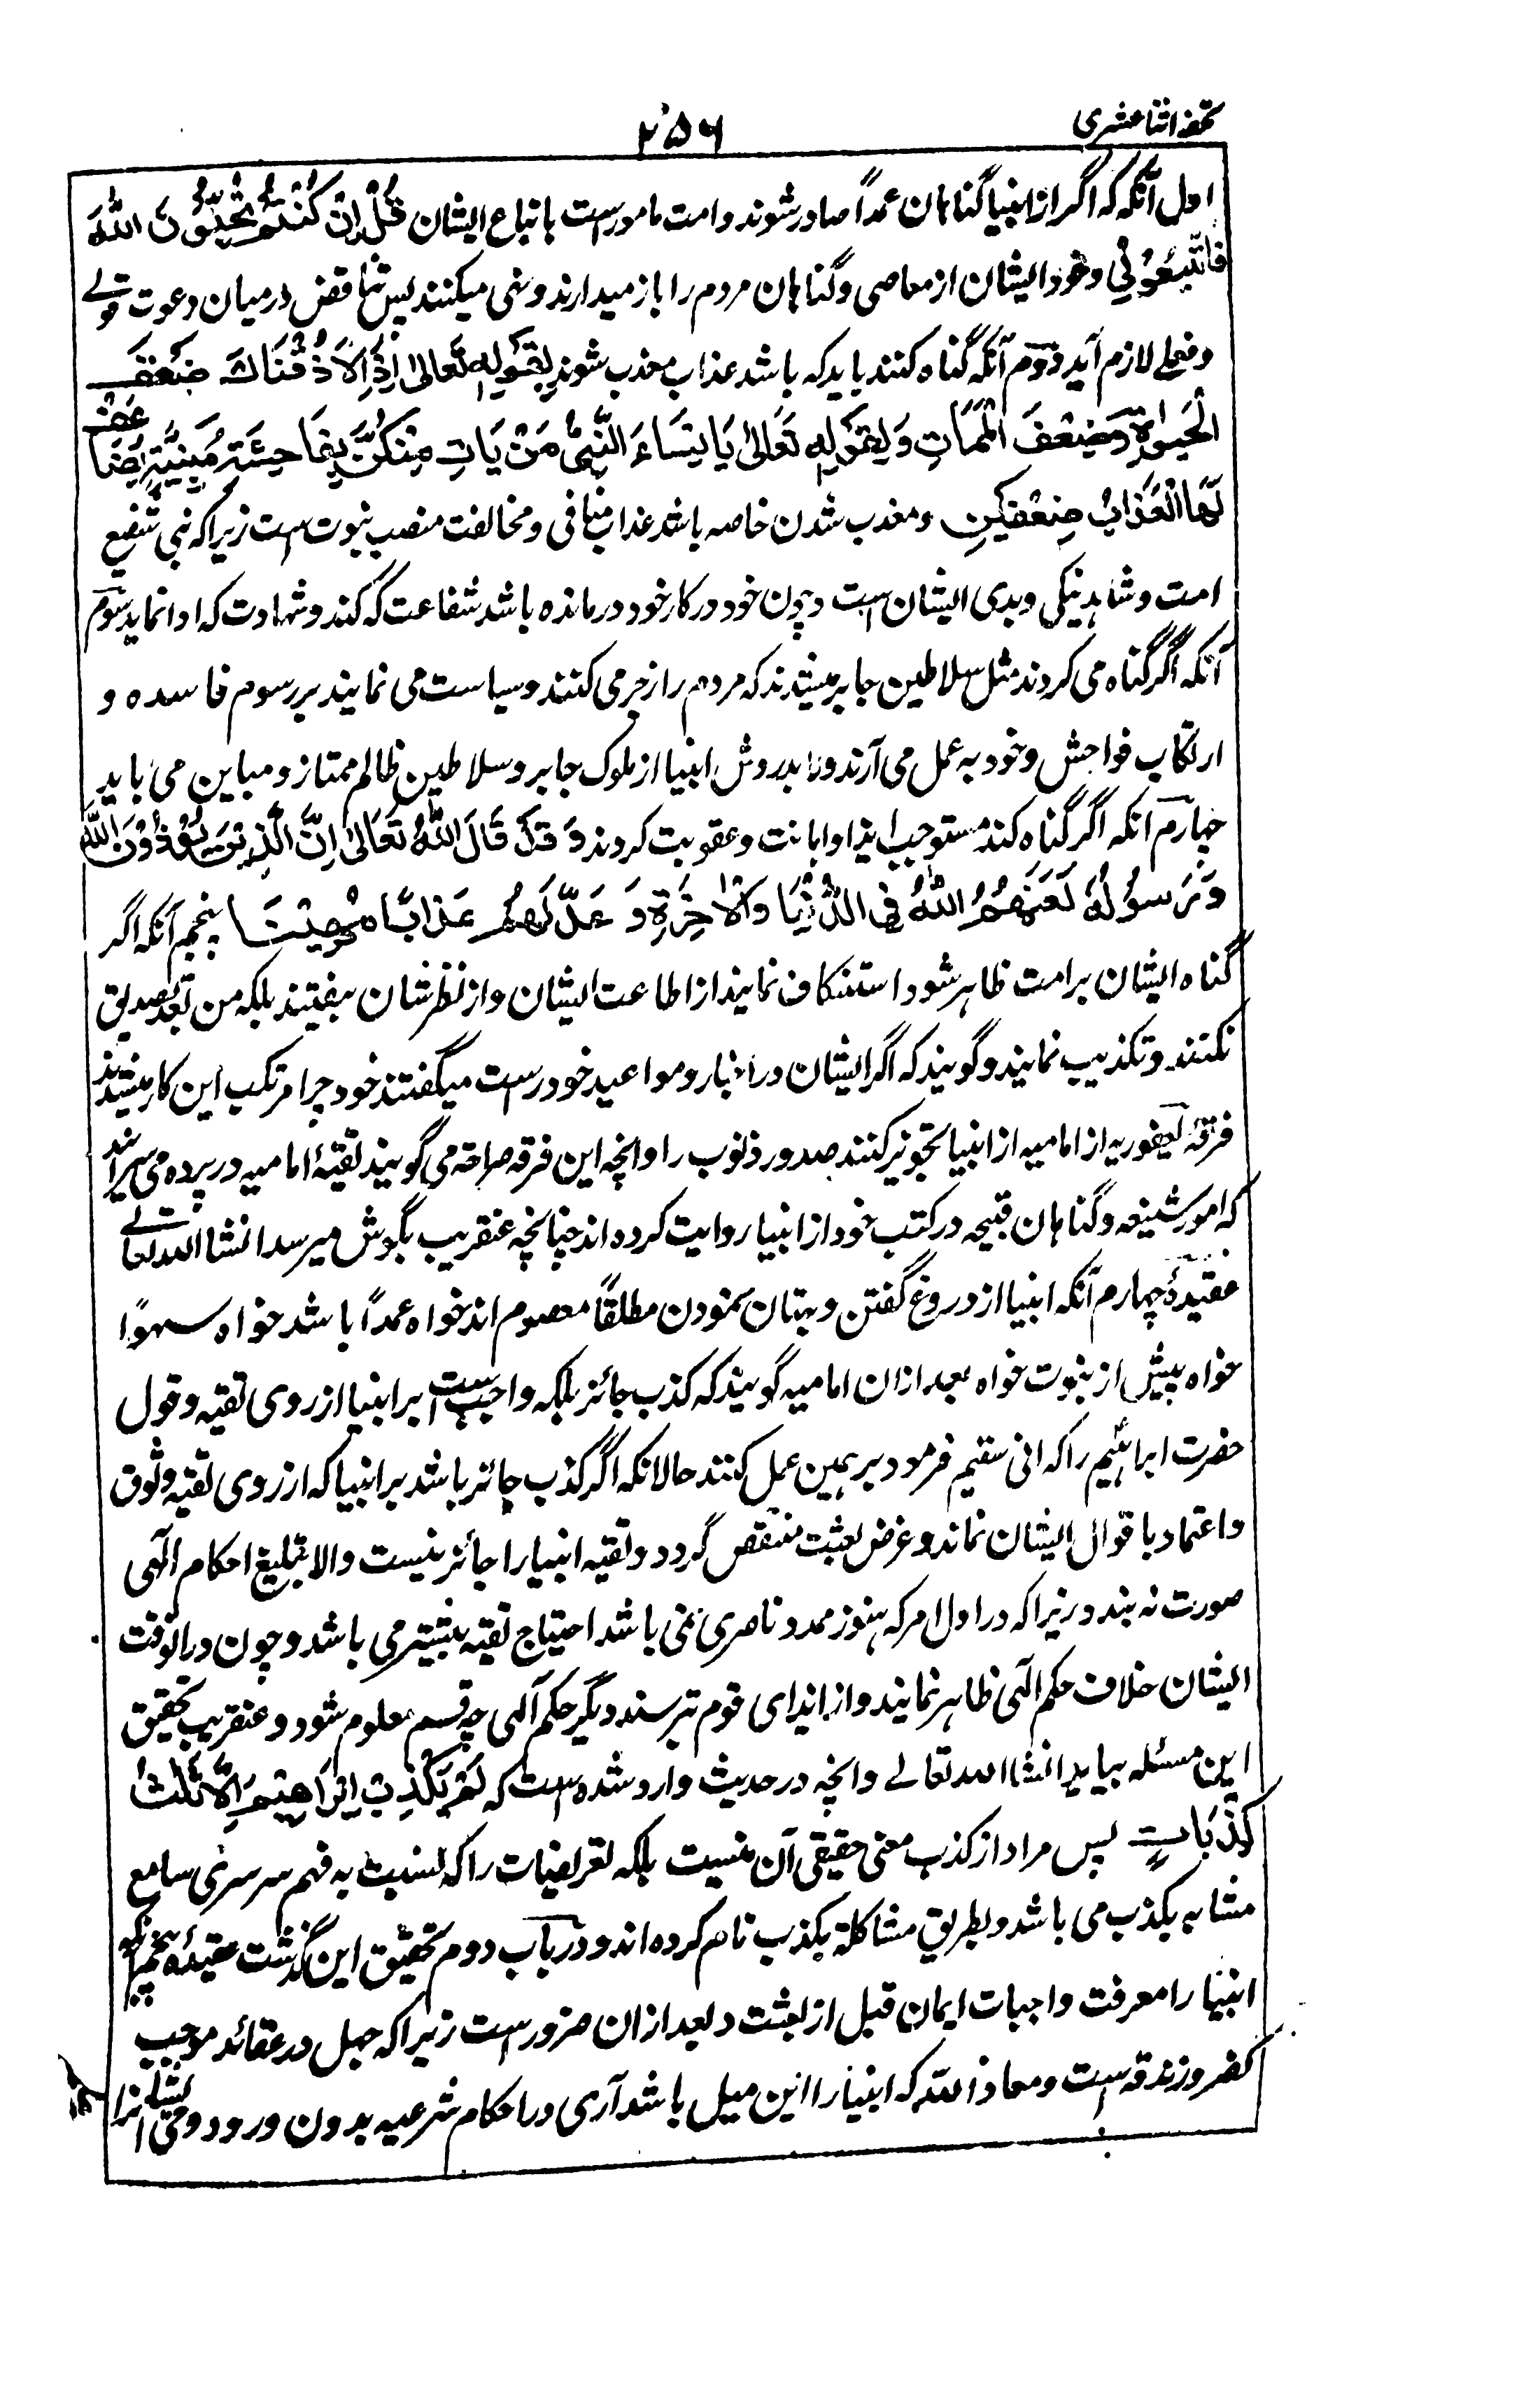 تحفه اثنا عشری
۲۵۶
اول آنکه که اگر از انبیا گناهان عمداً صادر شوند و امت مامور است باتباع ایشان قُلْ اِنْ كُنْتُمْ تُحِبُّوْنَ اللّٰهَ
فَاتَّبِعُوْنِیْ و خود ایشان از معاصی و گناهان مردم را باز میدارند و نهی میکنند پس تناقض در میان دعوت قولے
و فعلے لازم آید دوم آنکه گناه کنند باید که باشد عذاب معذب شوند لِقَوْلِهٖ تَعَالٰی اِذًا لَاَذَقْنَاكَ ضِعْفَ
الْحَیٰوةِ وَضِعْفَ الْمَمَاتِ وَلِقَوْلِهٖ تَعَالٰی یَا نِسَاءَ النَّبِیِّ مَنْ یَاتِ مِنْكُنَّ بِفَاحِشَةٍ مُبَیِّنَةٍ یُضَاعَفْ
لَهَا الْعَذَابُ ضِعْفَیْنِ و معذب شدن خاصه باشد عذاب منافی و مخالفت منصب نبوت است زیرا که نبی شفیع
امت و شاهد نیکی و بدی ایشان است و چون خود در کار خود درمانده باشد شفاعت که کند و شهادت که ادا نماید سوم
آنکه اگر گناه می کردند مثل سلاطین جابر میشدند که مردم را زجر می کنند و سیاست می نمایند بر رسوم فاسده و
ارتکاب فواحش و خود به عمل می آرند و باید روش انبیا از ملوک جابر و سلاطین ظالم ممتاز و مباین می باید
چهارم آنکه اگر گناه کنند مستوجب ایذا و اهانت و عقوبت کردند وَ قَدْ قَالَ اللّٰهُ تَعَالٰی اِنَّ الَّذِیْنَ یُؤْذُوْنَ اللّٰهَ
وَ رَسُوْلَهٗ لَعَنَهُمُ اللّٰهُ فِی الدُّنْیَا وَالْاٰخِرَةِ وَ عَدَّ لَهُمْ عَذَابًا مُّهِیْنًا پنجم آنکه اگر
گناه ایشان بر امت ظاهر شود استنکاف نمایند از اطاعت ایشان و از نظر شان بیفتند بلکه من بعد تصدیق
نکنند و تکذیب نمایند و گویند که اگر ایشان در اخبار و مواعید خود راست میگفتند خود چرا مرتکب این کار میشدند
فرقهٔ یعفوریه از امامیه از انبیا تجویز کنند صدور ذنوب را و انچه این فرقه صراحة می گویند تقیهٔ امامیه در پرده می سرایند
که امور شنیعه و گناهان قبیحه در کتب خود از انبیا روایت کرده اند چنانچه عنقریب بگوش میرسد انشا الله تعالے
عقیدهٔ چهارم آنکه انبیا از دروغ گفتن و بهتان نمودن مطلقاً معصوم اند خواه عمداً باشد خواه سهوًا
خواه پیش از نبوت خواه بعد ازان امامیه گویند که کذب جائز بلکه واجب است بر انبیا از روی تقیه و قول
حضرت ابراهیم را که انی سقیم فرمود بر همین عمل کنند حالانکه اگر کذب جائز باشد بر انبیا که از روی تقیه وثوق
و اعتماد باقوال ایشان نماند و غرض بعثت منتقص گردد و تقیه انبیا را جائز نیست والا تبلیغ احکام الٰهی
صورت نه بندد زیرا که در اول امر که هنوز ممد و ناصری نمی باشد احتیاج تقیه بیشتر می باشد و چون در انوقت
ایشان خلاف حکم الٰهی ظاهر نمایند و از ایذای قوم بترسند دیگر حکم آلهی چه قسم معلوم شود و عنقریب تحقیق
این مسئله بیاید انشا الله تعالے و انچه در حدیث وارد شده است که لَمْ یَكْذِبْ اِبْرَاهِیْمُ اِلَّا ثَلٰثَ
كَذَبَاتٍ پس مراد از کذب معنی حقیقی آن نیست بلکه تعریضات را که نسبت به فهم سرسری سامع
مشابه بکذب می باشد و بطریق مشاکلة بکذب نام کرده اند و در باب دوم تحقیق این گذشت عقیدهٔ پنجم آنکه
انبیا را معرفت واجبات ایمان قبل از بعثت و بعد ازان ضرور است زیرا که جهل در عقائد موجب
کفر و زندقه است و معاذ الله که انبیا را این میل باشد آری در احکام شرعیه بدون ورود وحی